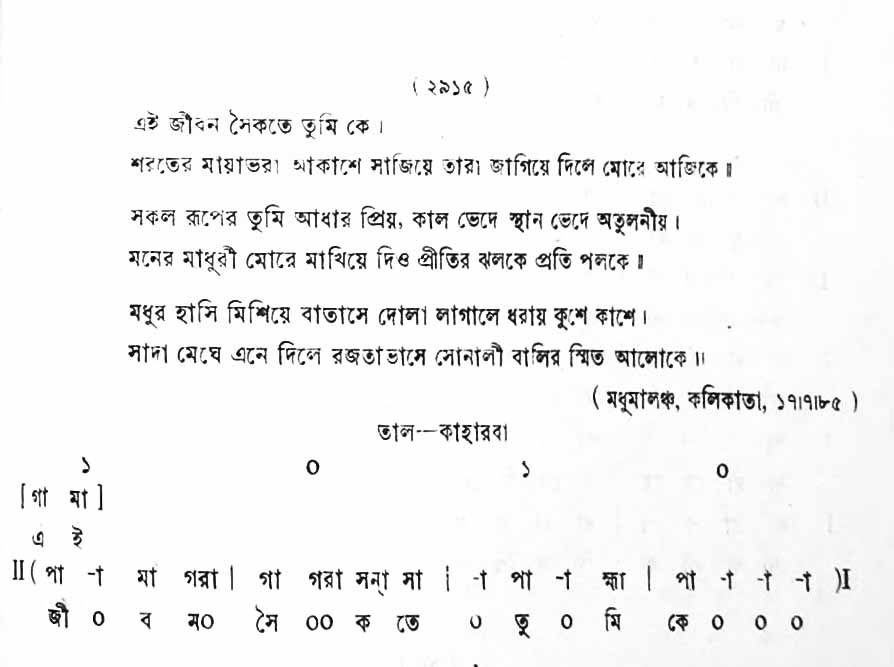 ( ২৯১৫ )
এই জীবন সৈকতে তুমি কে ।
শরতের মায়াভরা আকাশে সাজিয়ে তারা জাগিয়ে দিলে মোরে আজিকে ॥
সকল রূপের তুমি আধার প্রিয়, কাল ভেদে স্থান ভেদে অতুলনীয় ।
মনের মাধুরী মোরে মাখিয়ে দিও প্রীতির ঝলকে প্রতি পলকে ॥
মধুর হাসি মিশিয়ে বাতাসে দোলা লাগালে ধরায় কুশে কাশে ।
সাদা মেঘে এনে দিলে রজতাভাসে সোনালী বালির স্মিত আলোকে ॥
( মধুমালঞ্চ, কলিকাতা, ১৭।৭।৮৫ )
তাল--কাহারবা
১ ০ ১ ০
[ গা মা ]
এ ই
II ( পা -া মা গরা | গা গরা সন্‌া সা | -া পা -া হ্মা | পা -া -া -া ) I
জী ০ ব ন০ সৈ ০০ ক তে ০ তু ০ মি কে ০ ০ ০